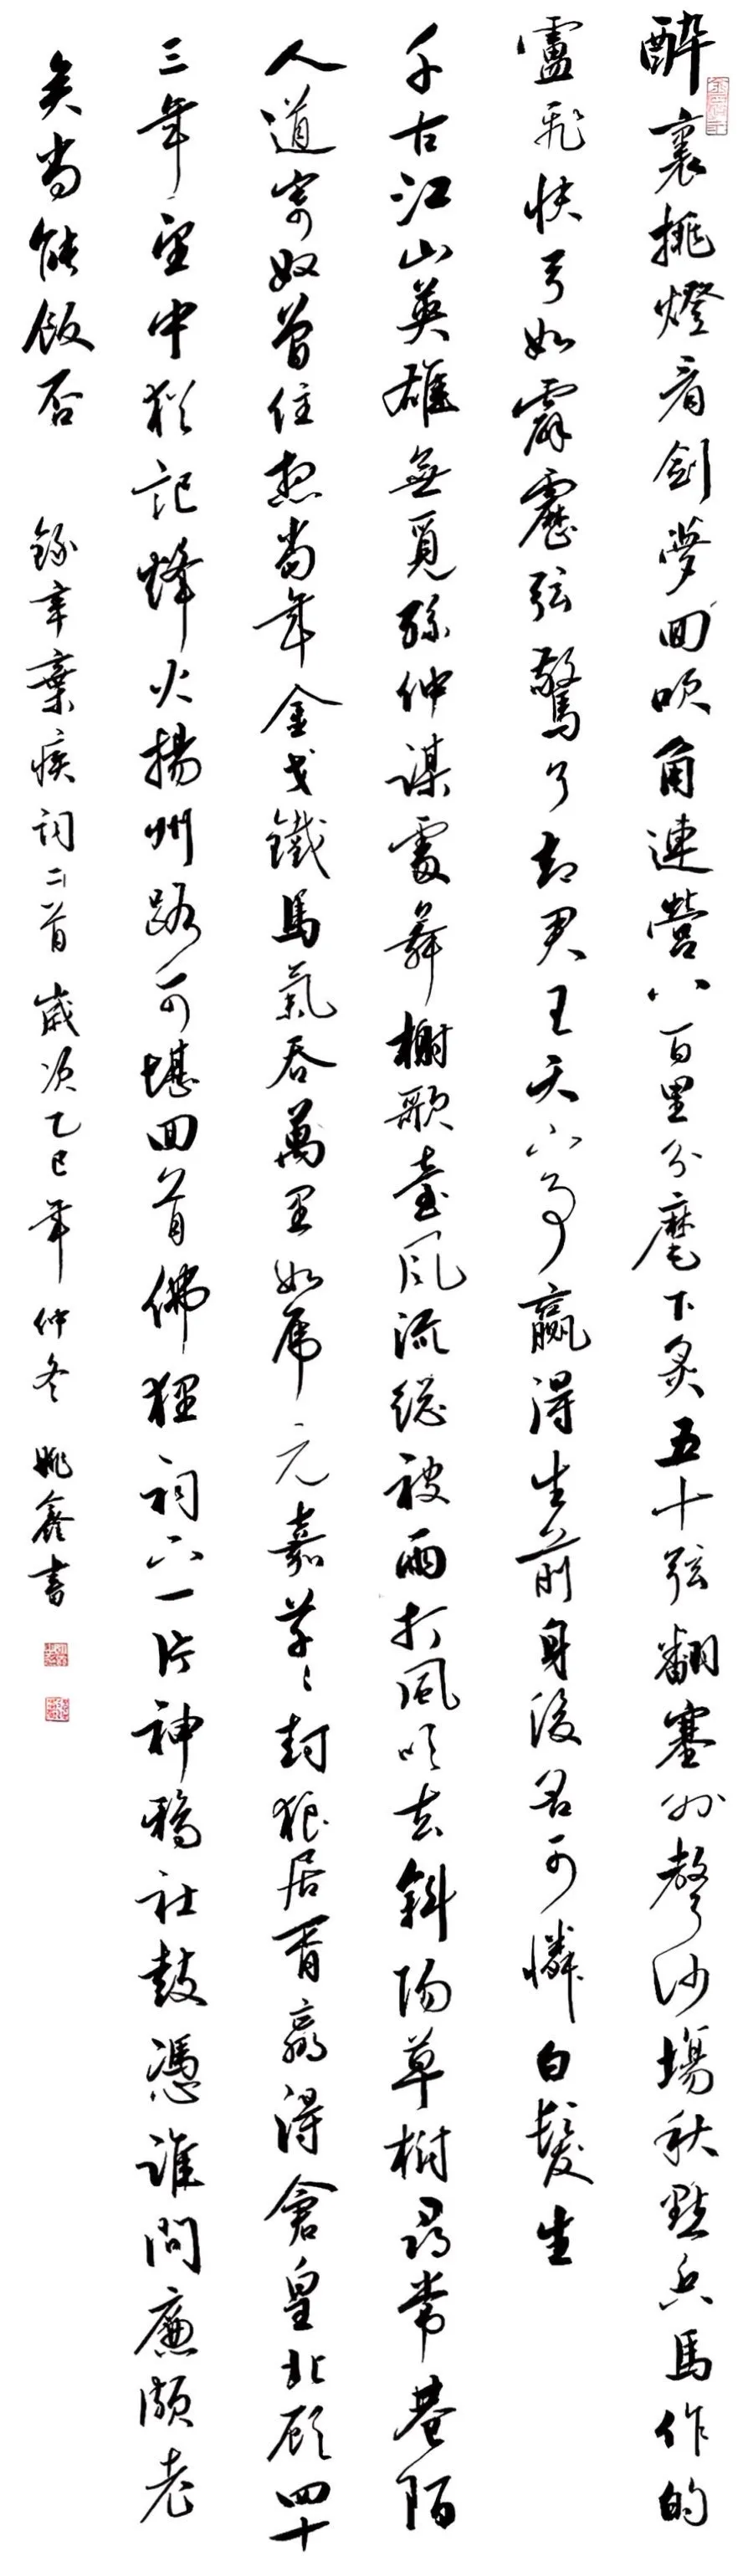 醉裏挑燈看劍夢回吹角連營八百里分麾下炙五十弦翻塞外聲沙場秋點兵馬作的
盧飛快弓如霹靂弦驚了却君王天下事贏得生前身後名可憐白髮生
千古江山英雄無覓孫仲謀處舞榭歌臺風流總被雨打風吹去斜陽草樹尋常巷陌
人道寄奴曾住想當年金戈鐵馬氣吞萬里如虎元嘉草草封狼居胥贏得倉皇北顧四十
三年望中猶記烽火揚州路可堪回首佛狸祠下一片神鴉社鼓憑誰問廉頗老
矣尚能飯否 錄辛棄疾詞二首 歲次乙巳年仲冬 姚鑫書